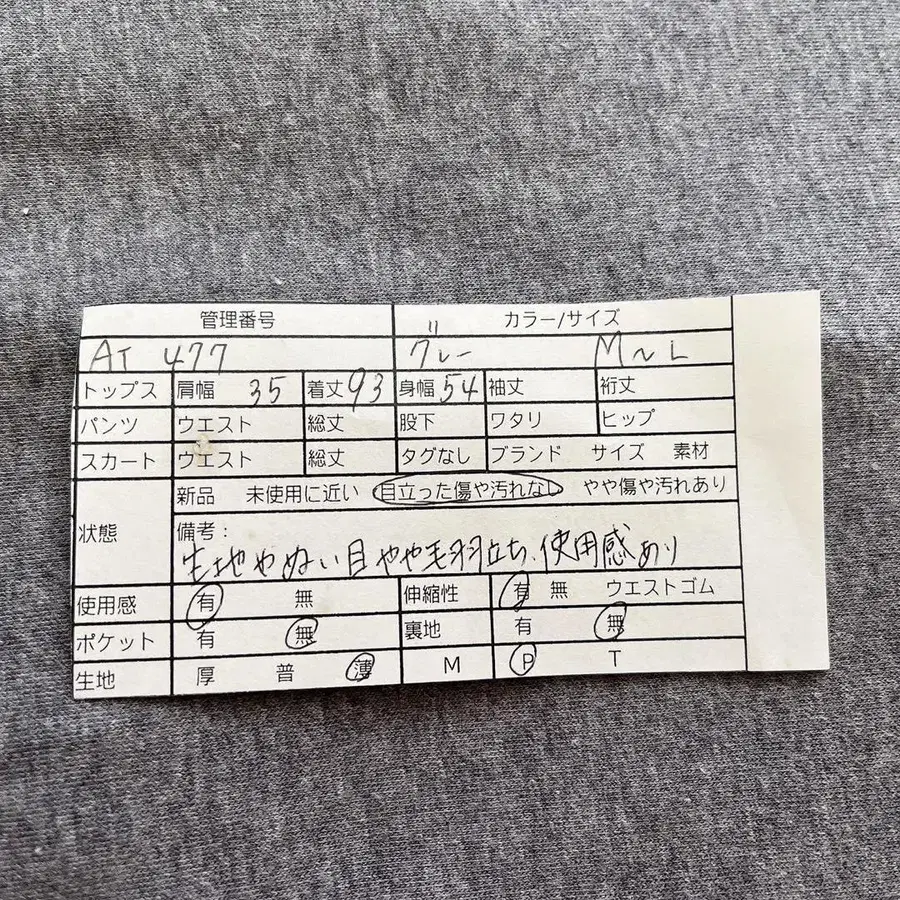 管理番号 カラー/サイズ
AT 477 グレー M〜L
トップス 肩幅 35 着丈 93 身幅 54 袖丈 裄丈
パンツ ウエスト 総丈 股下 ワタリ ヒップ
スカート ウエスト 総丈 タグなし ブランド サイズ 素材
状態 新品 未使用に近い 目立った傷や汚れなし やや傷や汚れあり
備考：
生地やぬい目やや毛羽立ち、使用感あり
使用感 有 無 伸縮性 有 無 ウエストゴム
ポケット 有 無 裏地 有 無
生地 厚 普 薄 M P T